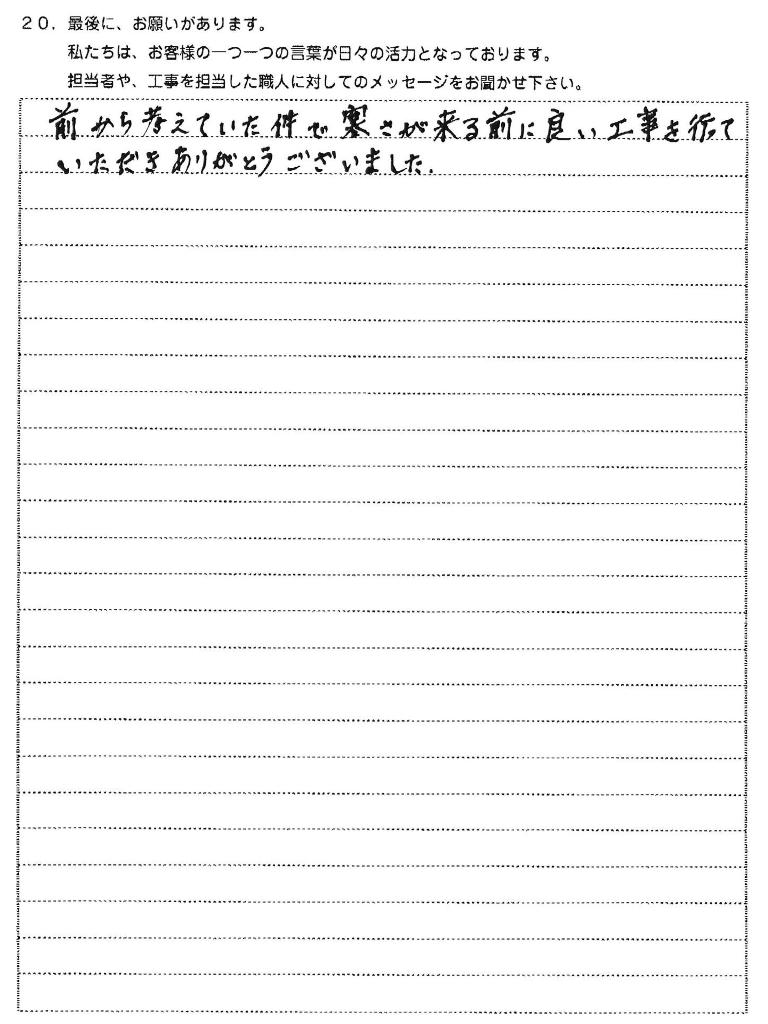 20. 最後に、お願いがあります。
私たちは、お客様の一つ一つの言葉が日々の活力となっております。
担当者や、工事を担当した職人に対してのメッセージをお聞かせ下さい。
前から考えていた件で寒さが来る前に良い工事を行って
いただきありがとうございました.